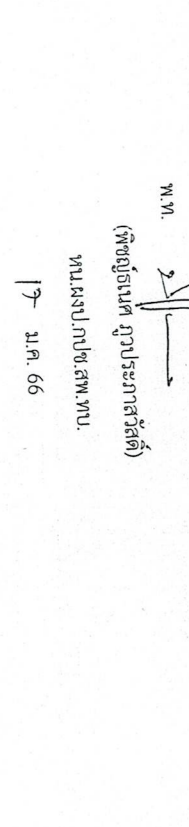 พ.ท.
(พิชญ์ธเนศ ภูวประภาสวัสดิ์)
หน.ผงป.กปช.สพ.ทบ.
17 ม.ค. 66